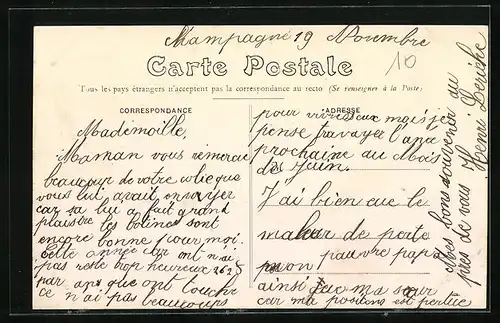 Mampagne 19 Novembre
10
Carte Postale
Tous les pays étrangers n'acceptent pas la correspondance au recto (Se renseigner à la Poste)
CORRESPONDANCE
ADRESSE
Mademoille,
Maman vous remercie
beaucoup de votre colie que
vous lui avait envoyer
car sa lui a fait grand
plaisire les botines sont
encore bonne pour moi.
Cette année on n'ai
pas reste trop heureux 262 5
par ans que ont touche
ce n'ai pas beaucoups
pour vivre aux mais je
pense travayer l'ans
prochaine au Mois
de Juin.
J'ai bien eue le
maleur de perte
mon pauvre papa
ainsi que ma sœur
car ma position est pertue
Mes bons souvenir au
près de vous Henri